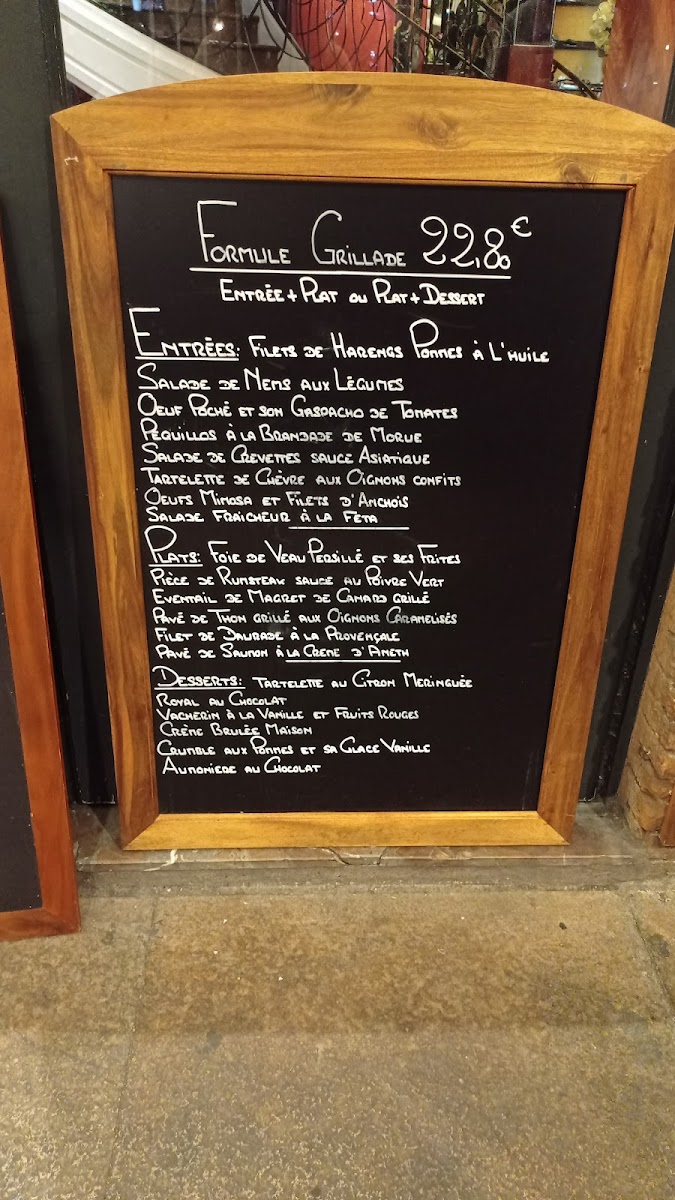 FORMULE GRILLADE 22,80€
ENTRÉE + PLAT OU PLAT + DESSERT
ENTRÉES: FILETS DE HARENGS POMMES À L'HUILE
SALADE DE NEMS AUX LÉGUMES
OEUF POCHÉ ET SON GASPACHO DE TOMATES
PEQUILLOS À LA BRANDADE DE MORUE
SALADE DE CREVETTES SAUCE ASIATIQUE
TARTELETTE DE CHÈVRE AUX OIGNONS CONFITS
OEUFS MIMOSA ET FILETS D'ANCHOIS
SALADE FRAICHEUR À LA FÉTA
PLATS: FOIE DE VEAU PERSILLÉ ET SES FRITES
PIÈCE DE RUMSTEAK SAUCE AU POIVRE VERT
EVENTAIL DE MAGRET DE CANARD GRILLÉ
PAVÉ DE THON GRILLÉ AUX OIGNONS CARAMELISÉS
FILET DE DAURADE À LA PROVENÇALE
PAVÉ DE SAUMON À LA CRÈME D'ANETH
DESSERTS: TARTELETTE AU CITRON MERINGUÉE
ROYAL AU CHOCOLAT
VACHERIN À LA VANILLE ET FRUITS ROUGES
CRÈME BRULÉE MAISON
CRUMBLE AUX POMMES ET SA GLACE VANILLE
AUMONIERE AU CHOCOLAT